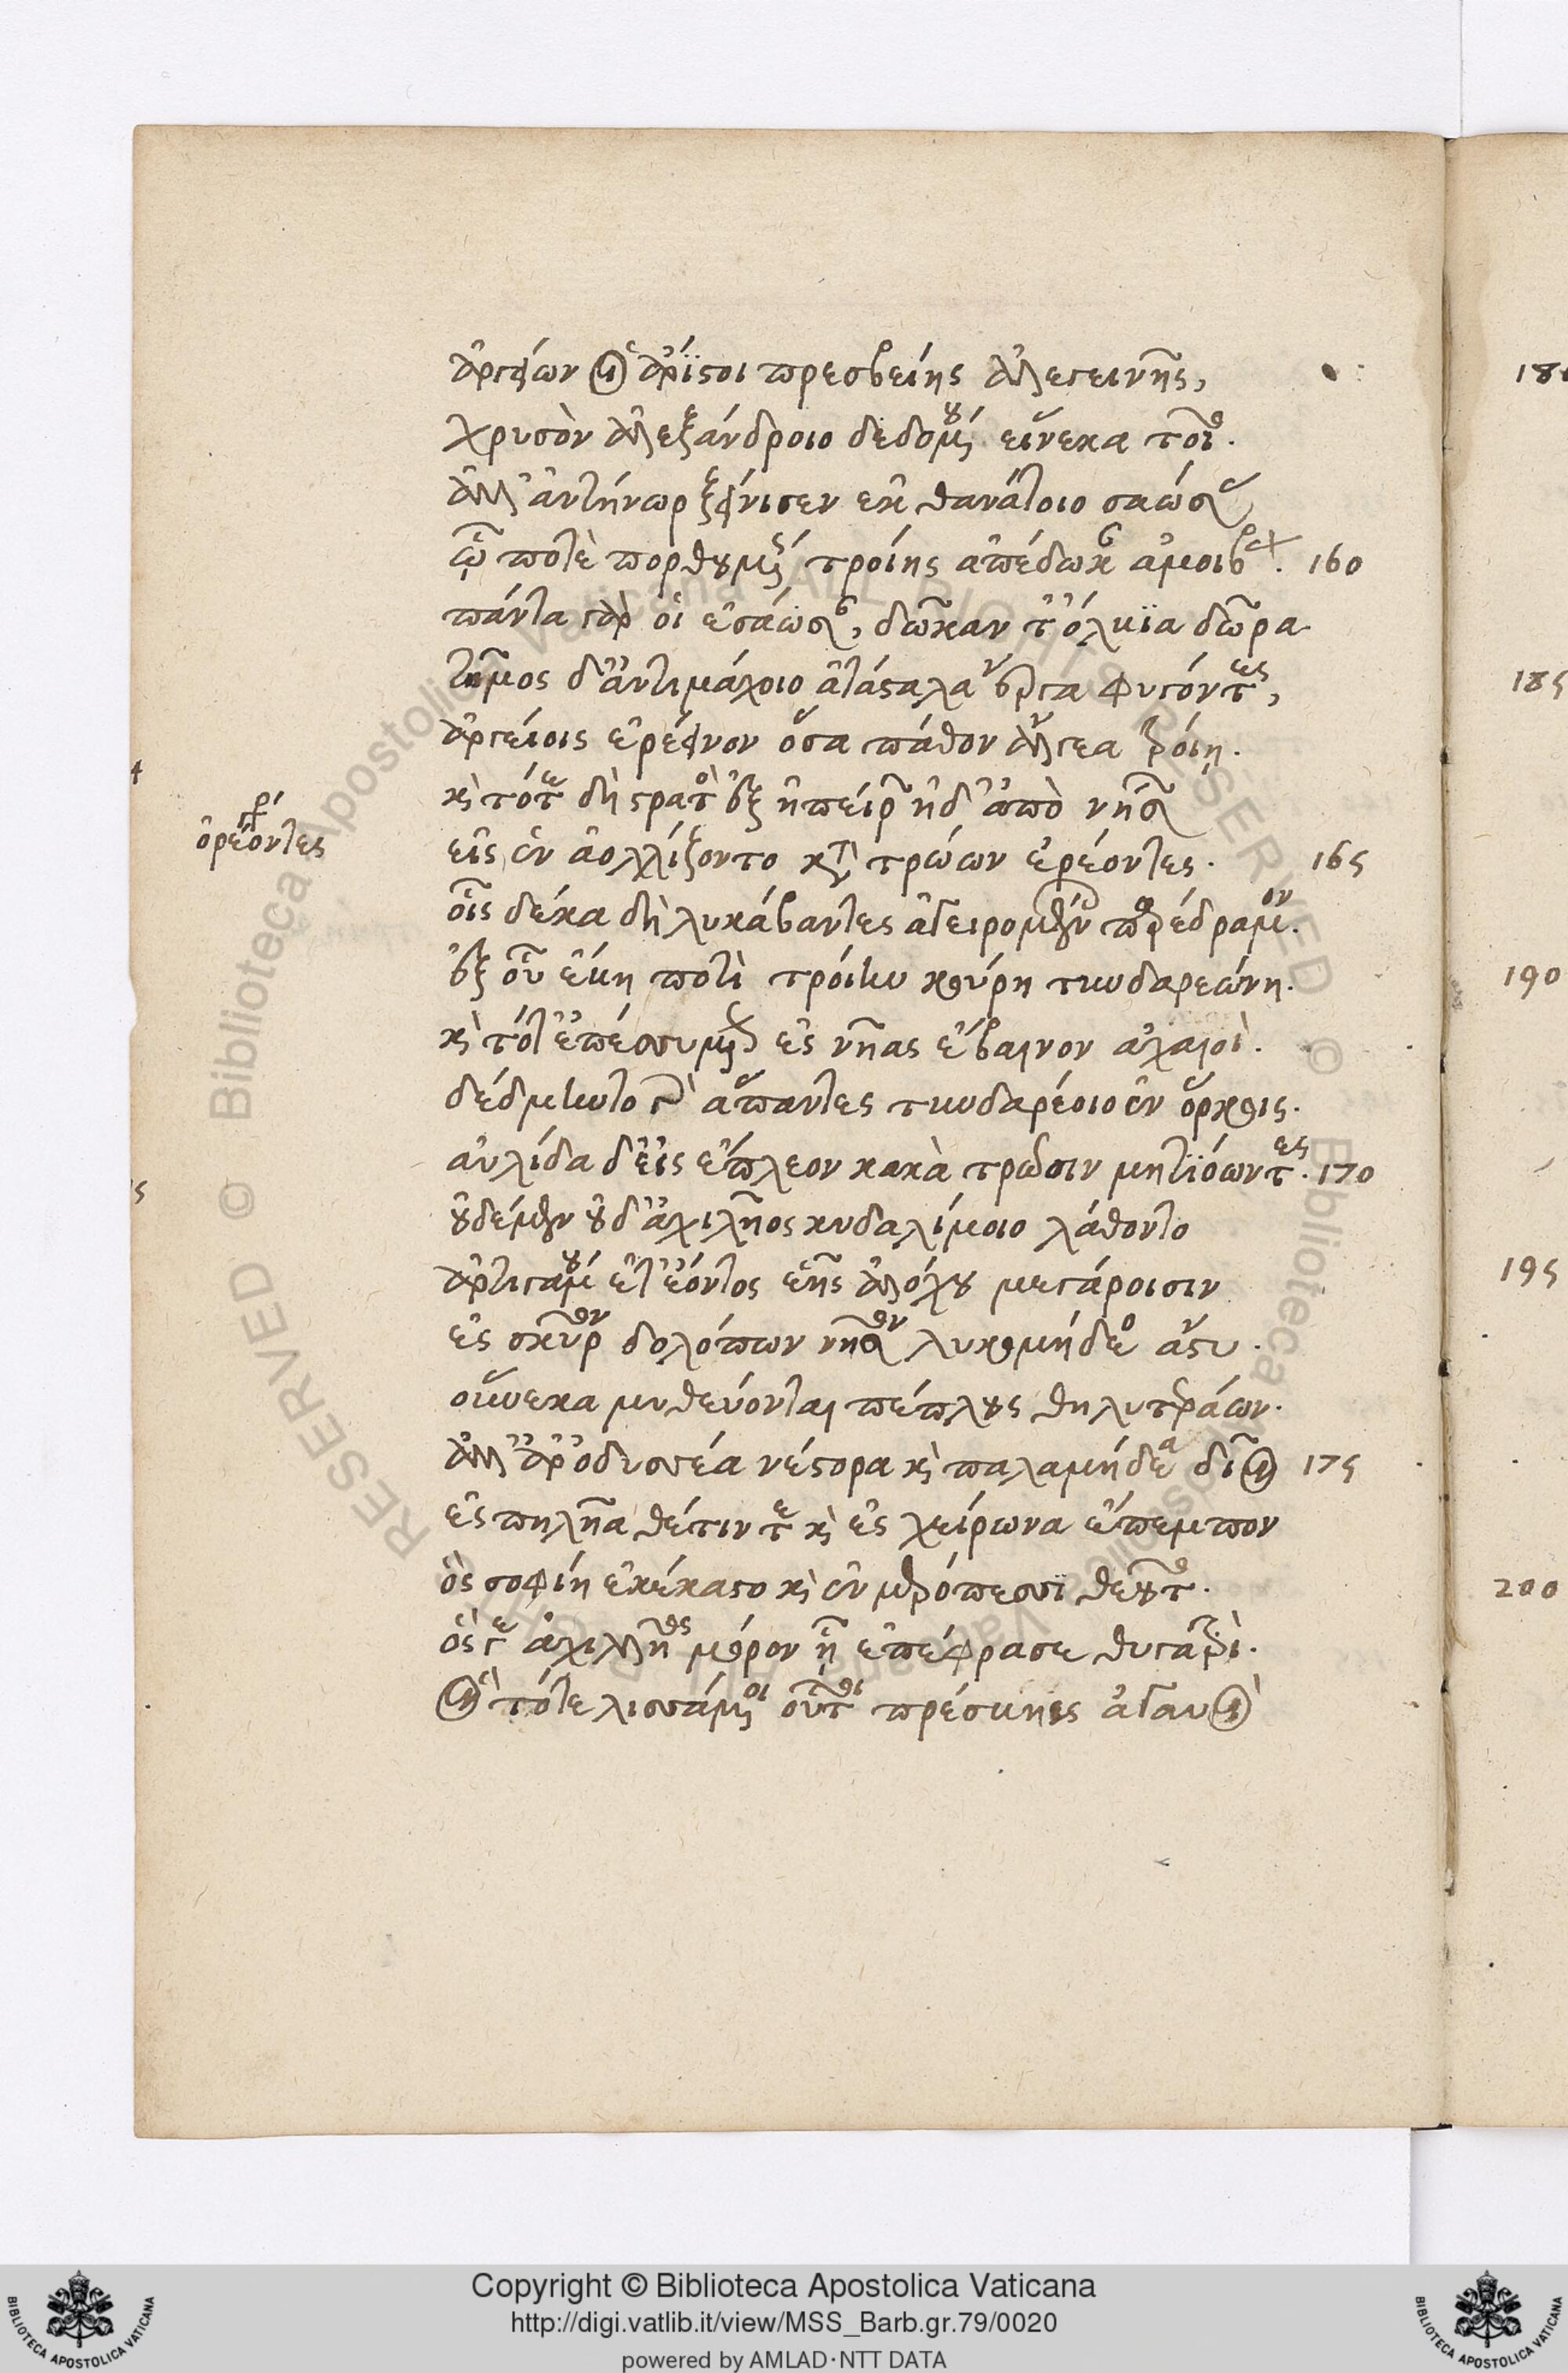 ἀργείων οἱ ἄριστοι πρεσβείης ἀλεγεινῆς,
χρυσὸν ἀλεξάνδροιο δεδεγμένου εἵνεκα τοῖο.
ἀλλ' ἀντήνωρ ξείνισεν ἐκ θανάτοιο σαώσας
ᾧ ποτὲ πορθουμένης τροίης ἀπέδωκαν ἀμοιβάς. 160
πάντα γάρ οἱ ἐσάωσαν, δῶκαν τ' ὄλβια δῶρα
τῆμος δ' ἀντιμάχοιο ἀτάσθαλα ἔργα φυγόντες,
ἀργείοις ἐρέεινον ὅσα πάθον ἄλγεα τροίῃ.
καὶ τότε δὴ στρατὸς ἐξ ἠπείρου ἠδ' ἀπὸ νήσων
εἰς ἓν ἀολλίζοντο κατὰ τρώων ἐρέοντες. 165
οἷς δέκα δὴ λυκάβαντες ἀγειρομένων παρέδραμον.
ἐξ οὗ ἔβη ποτὶ τροίην κούρη τυνδαρεώνη.
καὶ τότ' ἐπεσσυμένως ἐς νῆας ἔβαινον ἀχαιοὶ.
δέδμηντο γὰρ ἅπαντες τυνδαρέοιο ἐν ὅρκοις.
αὐλίδα δ' εἰς ἔπλεον κακὰ τρωσὶν μητιόωντες. 170
οὐδὲ μὲν οὐδ' ἀχιλῆος κυδαλίμοιο λάθοντο
ἀρτιγάμου ἔτ' ἐόντος ἑῆς ἀλόχου μεγάροισιν
ἐς σκῦρον δολόπων νῆσον λυκομήδεος ἄστυ.
οὕνεκα μυθεύονται πέπλους θηλυτεράων.
ἀλλ' ἄρ' ὀδυσσέα νέστορα καὶ παλαμήδεα δῖον 175
ἐς πηλῆα θέτιν τε καὶ ἐς χείρωνα ἔπεμπον
ὃς σοφίῃ ἐκέκαστο καὶ ἐν μερόπεσσι θεουτο.
ὅς γε ἀχιλλῆος μόρον ᾗ ἐπέφρασε θυγατρὶ.
οἳ τότε λισσάμενοι οὗτοι πρέσβηες ἀγαυοὶ
γρ.
ὀρέοντες
18
185
190
195
200
Copyright © Biblioteca Apostolica Vaticana
http://digi.vatlib.it/view/MSS_Barb.gr.79/0020
powered by AMLAD·NTT DATA